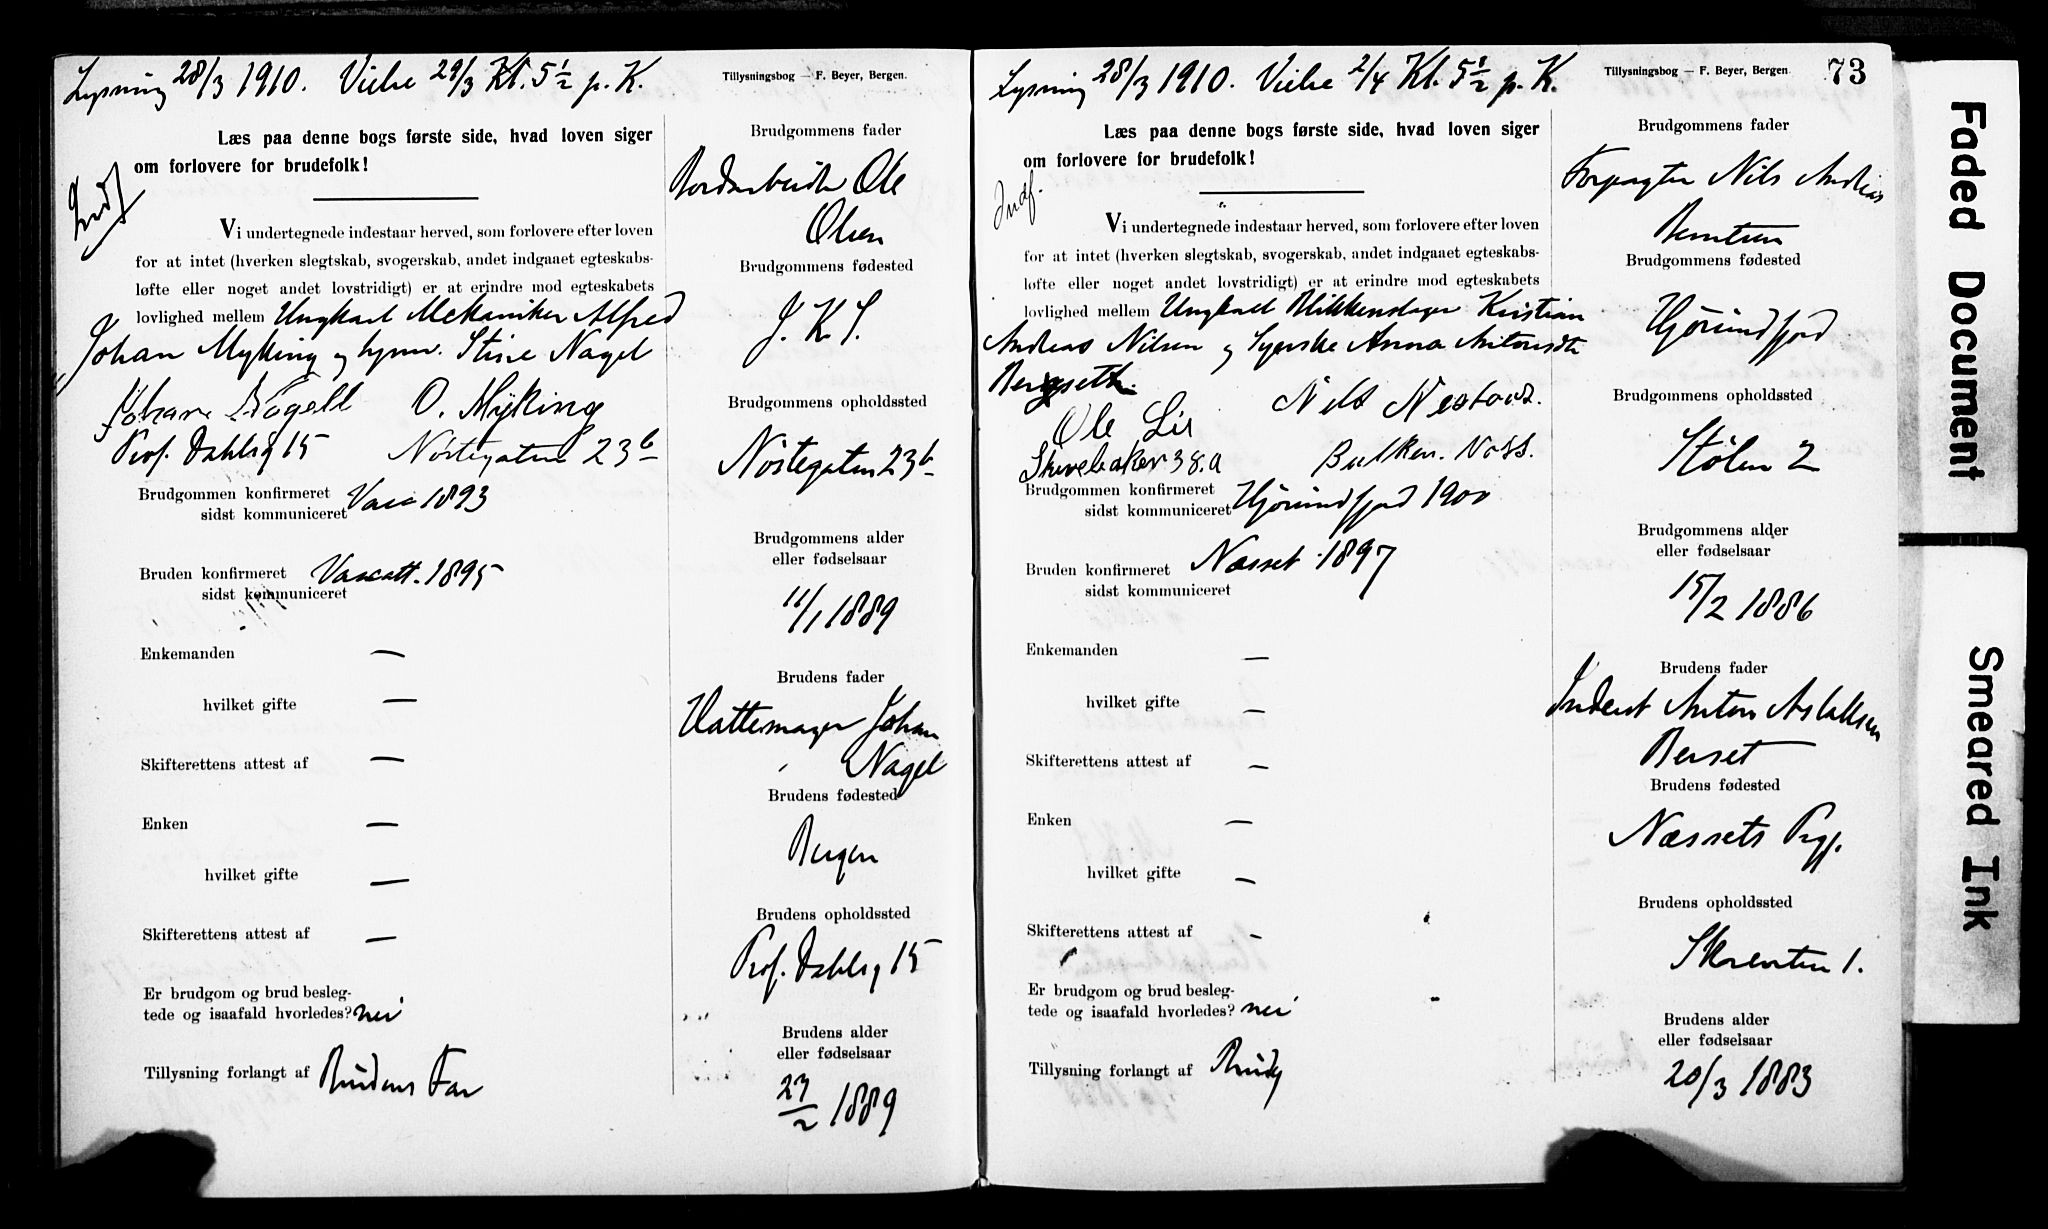 Lysning 28/3 1910. Vielse 29/3 Kl. 5½ p. K.
Tillysningsbog — F. Beyer, Bergen.
Læs paa denne bogs første side, hvad loven siger
om forlovere for brudefolk!
Indf
Vi undertegnede indestaar herved, som forlovere efter loven
for at intet (hverken slegtskab, svogerskab, andet indgaaet egteskabs-
løfte eller noget andet lovstridigt) er at erindre mod egteskabets
lovlighed mellem Ungkarl Mekaniker Alfred
Johan Myking og Stine Nagel
Johan Nagell O. Myking
Prof. Dahlsg 15 Nøstegaten 23b
Brudgommen konfirmeret
sidst kommuniceret 1893
Bruden konfirmeret 1895
sidst kommuniceret
Enkemanden —
hvilket gifte —
Skifterettens attest af —
Enken —
hvilket gifte —
Skifterettens attest af —
Er brudgom og brud besleg-
tede og isaafald hvorledes? nei
Tillysning forlangt af Brudens Far
Brudgommens fader
Ole
Olsen
Brudgommens fødested
J. K. S.
Brudgommens opholdssted
Nøstegaten 23b
Brudgommens alder
eller fødselsaar
11/1 1889
Brudens fader
Hattemager Johan
Nagel
Brudens fødested
Bergen
Brudens opholdssted
Prof. Dahlsg 15
Brudens alder
eller fødselsaar
27/2 1889
Lysning 28/3 1910. Vielse 2/4 Kl. 5½ p. K.
Tillysningsbog — F. Beyer, Bergen.
73
Læs paa denne bogs første side, hvad loven siger
om forlovere for brudefolk!
Indf.
Vi undertegnede indestaar herved, som forlovere efter loven
for at intet (hverken slegtskab, svogerskab, andet indgaaet egteskabs-
løfte eller noget andet lovstridigt) er at erindre mod egteskabets
lovlighed mellem Ungkarl Blikkenslager Kristian
Andreas Nilsen og Syerske Anna Antonsdtr
Bergseth.
Ole Lis Nils
Skivebakken 38.a Bulken. Voss.
Brudgommen konfirmeret
sidst kommuniceret Hjørundfjord 1900
Bruden konfirmeret Næsset 1897
sidst kommuniceret
Enkemanden —
hvilket gifte —
Skifterettens attest af —
Enken —
hvilket gifte —
Skifterettens attest af —
Er brudgom og brud besleg-
tede og isaafald hvorledes? nei
Tillysning forlangt af Brudg
Brudgommens fader
Forpagter Nils Andreas
Berntsen
Brudgommens fødested
Hjørundfjord
Brudgommens opholdssted
Stølen 2
Brudgommens alder
eller fødselsaar
15/2 1886
Brudens fader
Inderst Anton Aslaksen
Berset
Brudens fødested
Næssets Prgj.
Brudens opholdssted
Skrenten 1.
Brudens alder
eller fødselsaar
20/3 1883
Faded Document
Smeared Ink